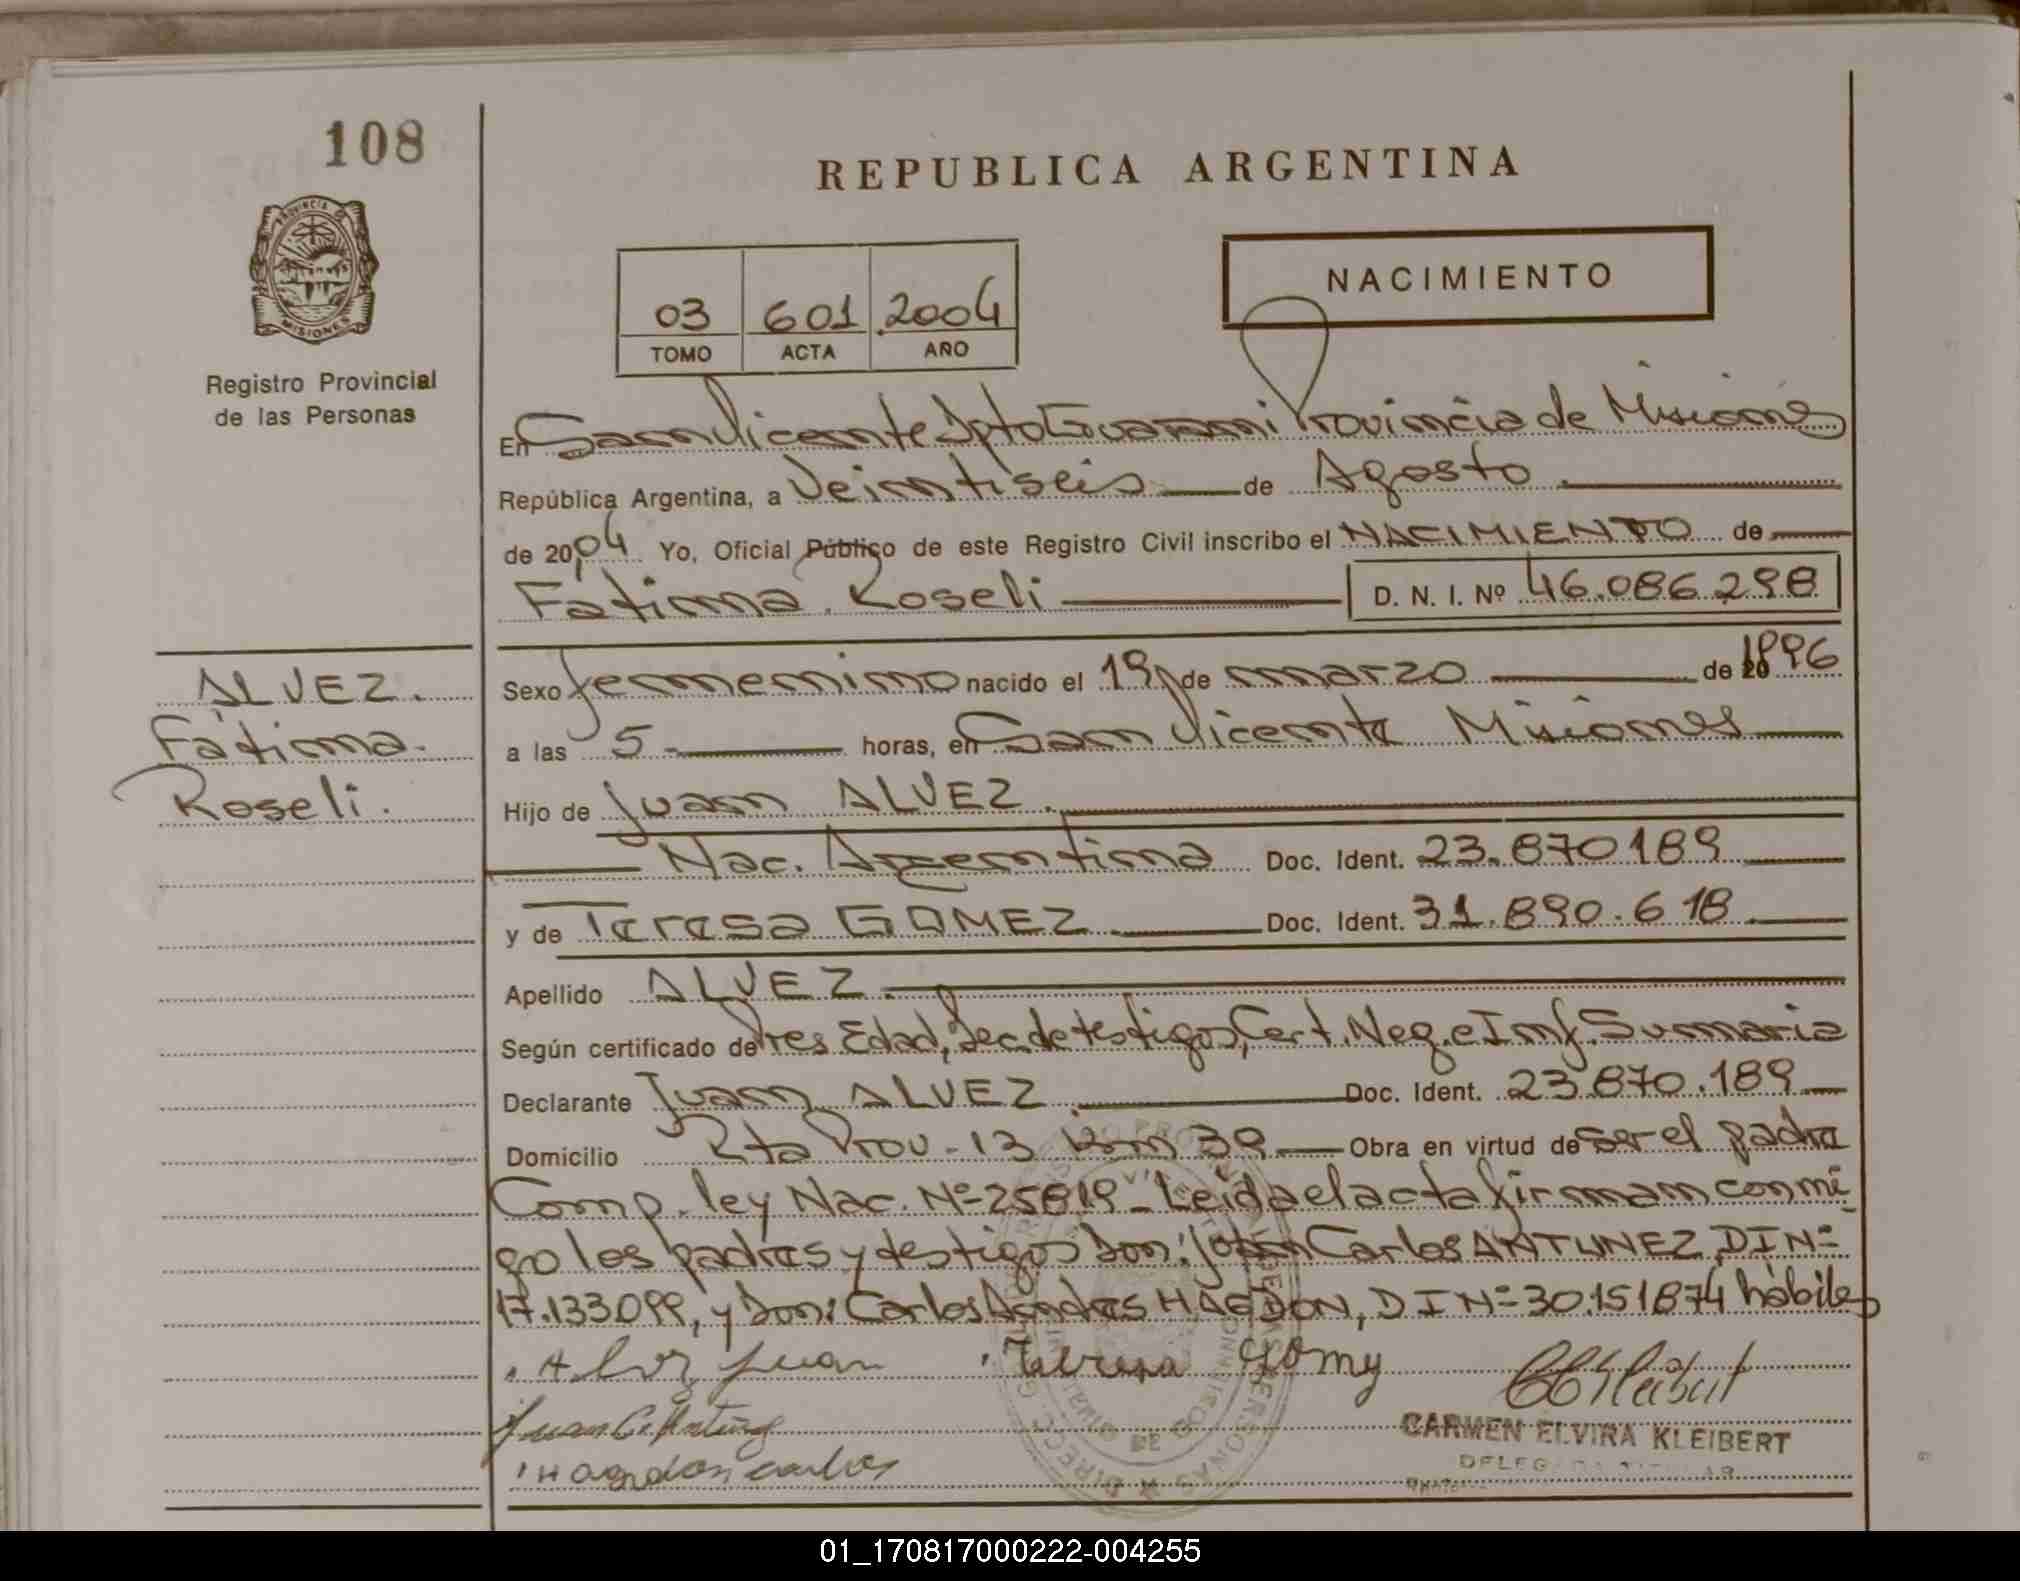 108
REPUBLICA ARGENTINA
PROVINCIA DE
MISIONES
Registro Provincial
de las Personas
NACIMIENTO
03 601 2004
TOMO ACTA AÑO
En San Vicente Dpto Guarani Provincia de Misiones
República Argentina, a Veintiseis de Agosto
de 2004 Yo, Oficial Público de este Registro Civil inscribo el NACIMIENTO de
Fatima Roseli D. N. I. Nº 46.086.298
ALVEZ.
Fatima
Roseli.
Sexo femenino nacido el 19 de marzo de 1996
a las 5 horas, en San Vicente Misiones
Hijo de Juan ALVEZ.
Nac. Argentina Doc. Ident. 23.870189
y de Teresa GOMEZ Doc. Ident. 31.890.618
Apellido ALVEZ.
Según certificado de Pres Edad, Dec. de testigos, Cert. Neg. e Inf. Sumaria
Declarante Juan ALVEZ Doc. Ident. 23.870.189
Domicilio Rta Prov-13 Km 39 Obra en virtud de ser el padre
Comp. ley Nac. Nº 25819 - Leida el acta firman conmi
go los padres y testigos Don: Juan Carlos ANTUNEZ, DI Nº
17.133.099, y Don: Carlos Andres HAGDON, DI Nº 30.151874 hábiles
Alvez Juan Teresa Gomez
Juan C. Antunez
Hagdon carlos
CARMEN ELVIRA KLEIBERT
01_170817000222-004255